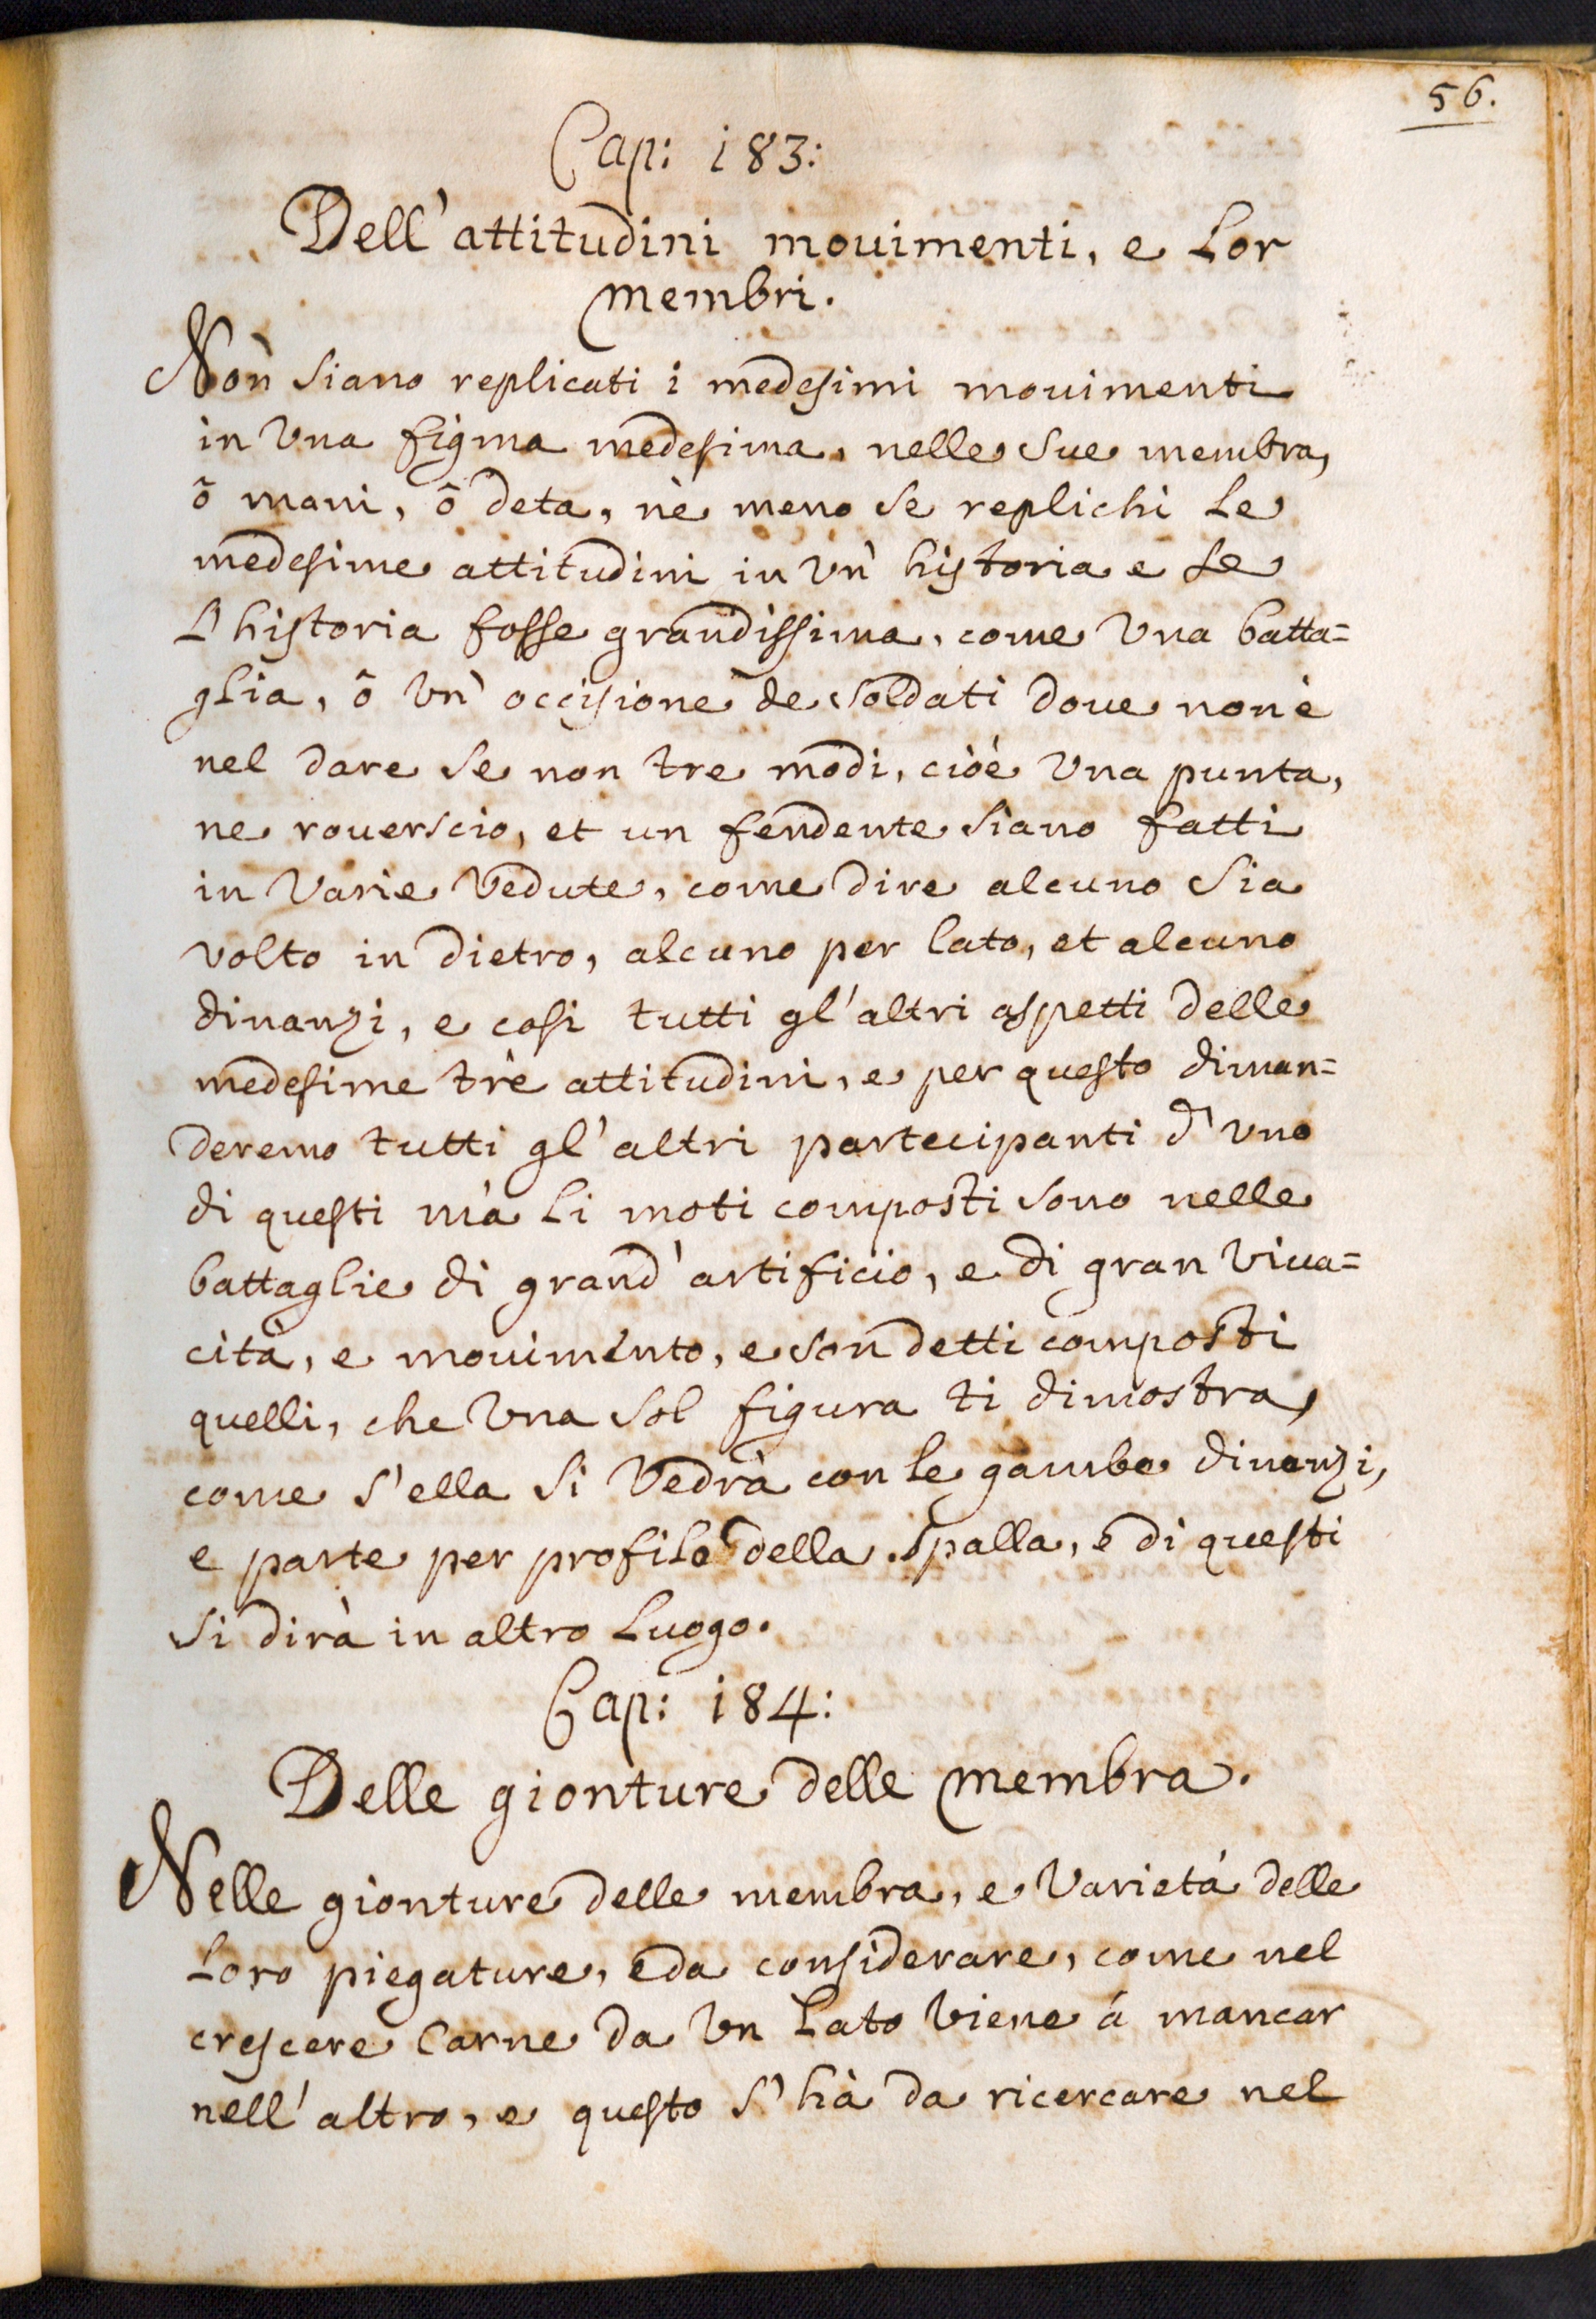 56.
Cap: 183:
Dell'attitudini mouimenti, e Lor
membri.
Non siano replicati i medesimi mouimenti
in Vna figma medesima, nelle sue membra,
ô mani, ô deta, nè meno se replichi le
medesime attitudini in Vn' historia e se
L'historia fosse grandissima, come Vna batta=
glia, ô Vn' occisione de soldati doue non è
nel dare se non tre modi, cioé Vna punta,
ne rouerscio, et un fendente siano fatti
in Varie Vedute, come dire alcuno sia
volto in dietro, alcuno per lato, et alcuno
dinanzi, e cosi tutti gl'altri aspetti delle
medesime trè attitudini, e per questo diman=
deremo tutti gl'altri partecipanti d'vno
di questi mà li moti composti sono nelle
battaglie di grand'artificio, e di gran Viua=
cità, e mouimento, e son detti composti
quelli, che Vna sol figura ti dimostra,
come s'ella si Vedrà con le gambe dinanzi,
e parte per profilo della spalla, e di questi
si dirà in altro luogo.
Cap: 184:
Delle gionture delle membra.
Nelle gionture delle membra, e Varietá delle
Loro piegature, e da considerare, come nel
crescere Carne da Vn Lato Viene á mancar
nell'altro, e questo s'hà da ricercare nel